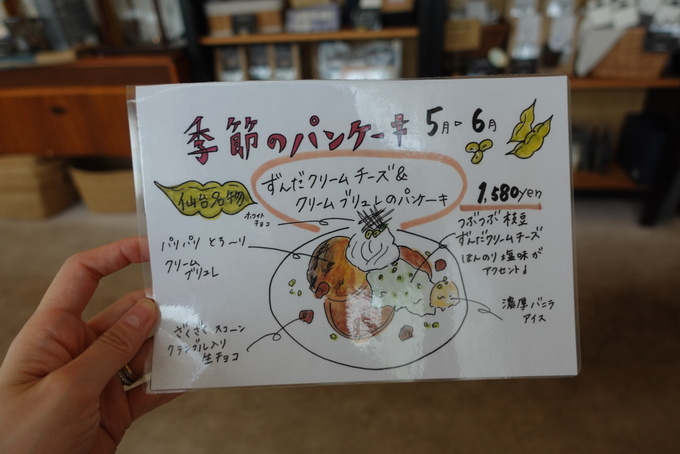 季節のパンケーキ 5月▷6月
仙台名物
ずんだクリームチーズ&
クリームブリュレのパンケーキ
1,580yen
ホワイト
チョコ
パリパリ とろ~り
クリーム
ブリュレ
つぶつぶ 枝豆
ずんだクリームチーズ
ほんのり 塩味が
アクセント♩
濃厚バニラ
アイス
ざくざく スコーン
クランブル入り
生チョコ